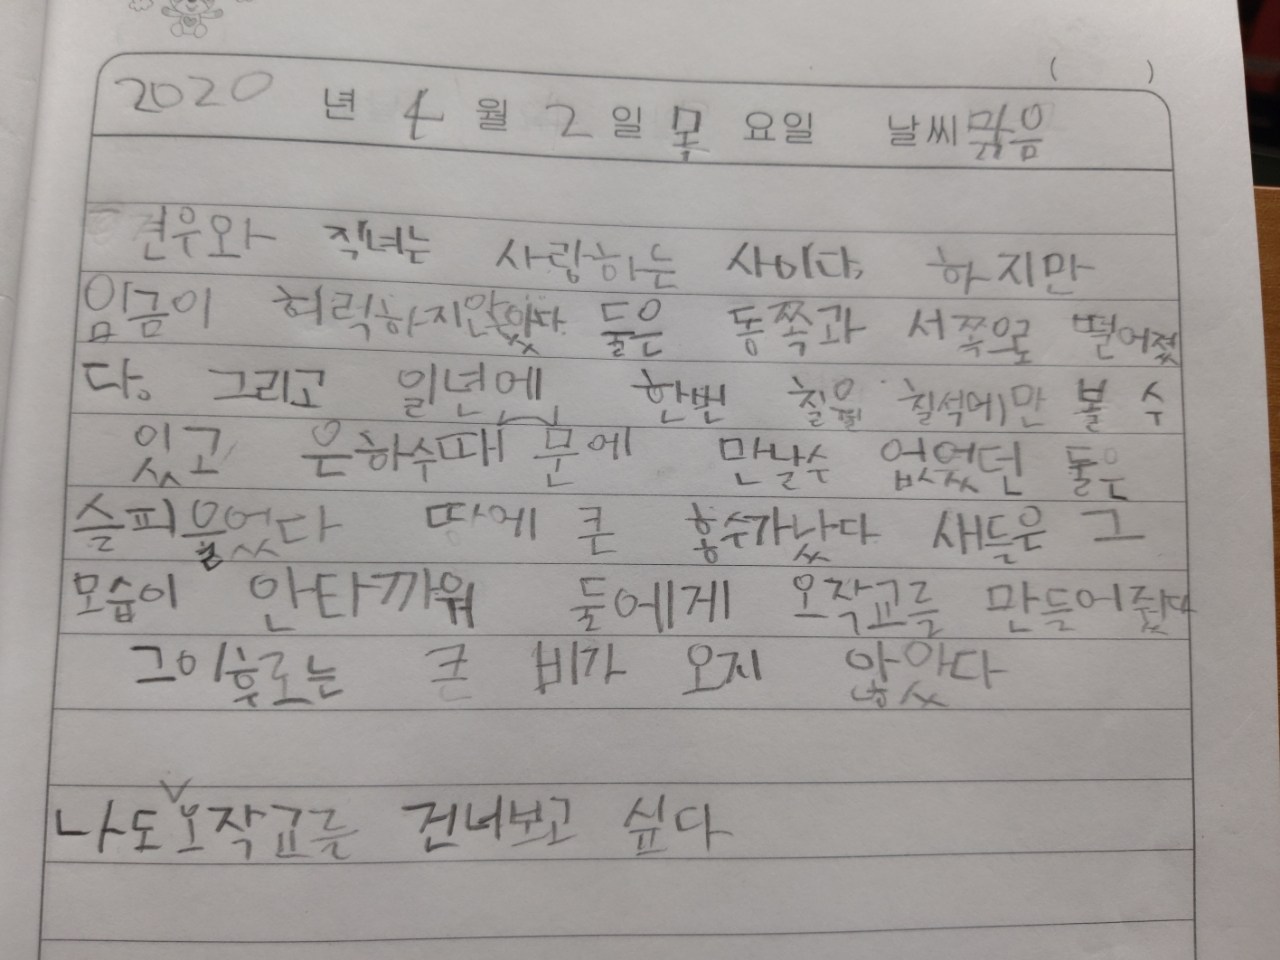 ( )
2020 년 4 월 2 일 목 요일 날씨 맑음
견우와 직녀는 사랑하는 사이다. 하지만
임금이 허락하지않았다 둘은 동쪽과 서쪽으로 떨어졌
다. 그리고 일년에 한번 칠월 칠석에만 볼 수
있고 은하수때문에 만날수 없었던 둘은
슬피울었다 땅에 큰 홍수가났다 새들은 그
모습이 안타까워 둘에게 오작교를 만들어줬다
그이후로는 큰 비가 오지 않았다
나도 오작교를 건너보고 싶다